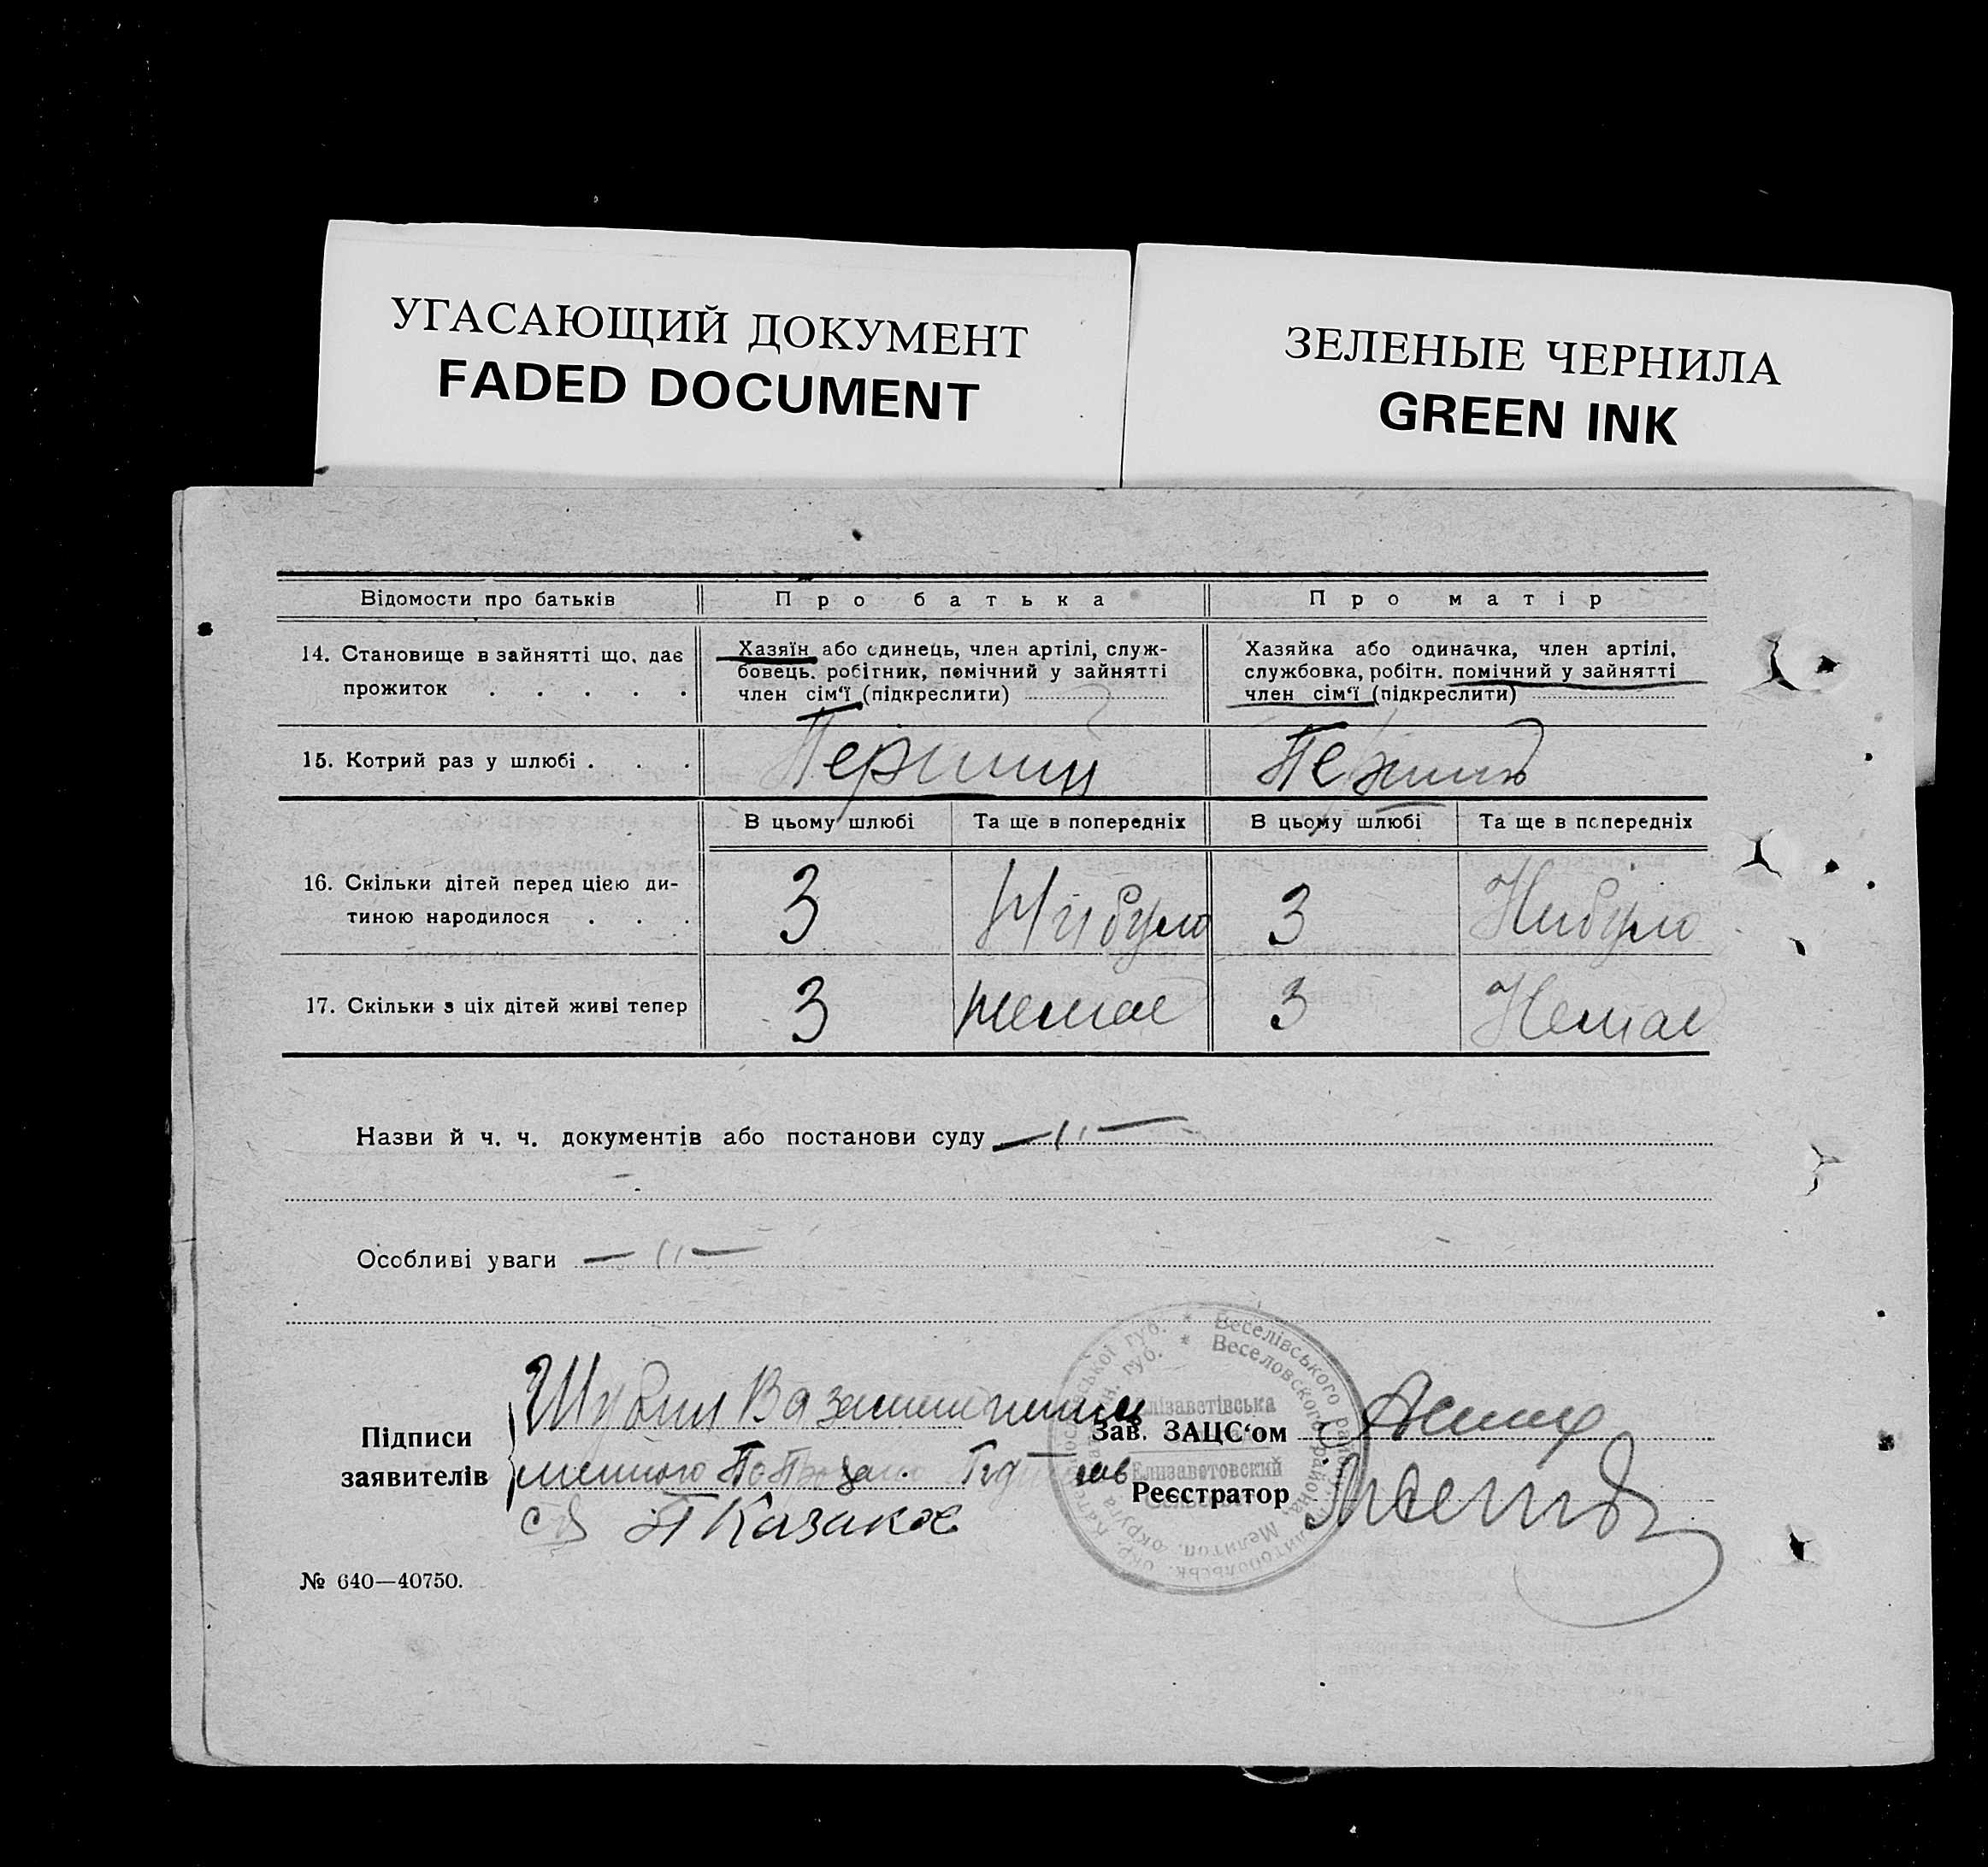 УГАСАЮЩИЙ ДОКУМЕНТ
FADED DOCUMENT
ЗЕЛЕНЫЕ ЧЕРНИЛА
GREEN INK
Відомости про батьків
Про батька
Про матір
14. Становище в зайнятті що, дає
прожиток . . . . .
Хазяїн або єдинець, член артілі, служ-
бовець, робітник, помічний у зайнятті
член сім'ї (підкреслити)
Хазяйка або одиначка, член артілі,
службовка, робітн. помічний у зайнятті
член сім'ї (підкреслити)
15. Котрий раз у шлюбі . . .
Перший
В цьому шлюбі
Та ще в попередніх
В цьому шлюбі
Та ще в попередніх
16. Скільки дітей перед цією ди-
тиною народилося . . .
3
Нибуло
3
Нибуло
17. Скільки з ціх дітей живі тепер
3
Немає
3
Немає
Назви й ч. ч. документів або постанови суду —〃—
Особливі уваги —〃—
Підписи
заявителів
Казаков
Зав. ЗАЦС'ом
Реєстратор
* Веселівського
* Веселовского района, Мелитоп. округа
Елізаветівська
Елизаветовский
№ 640—40750.